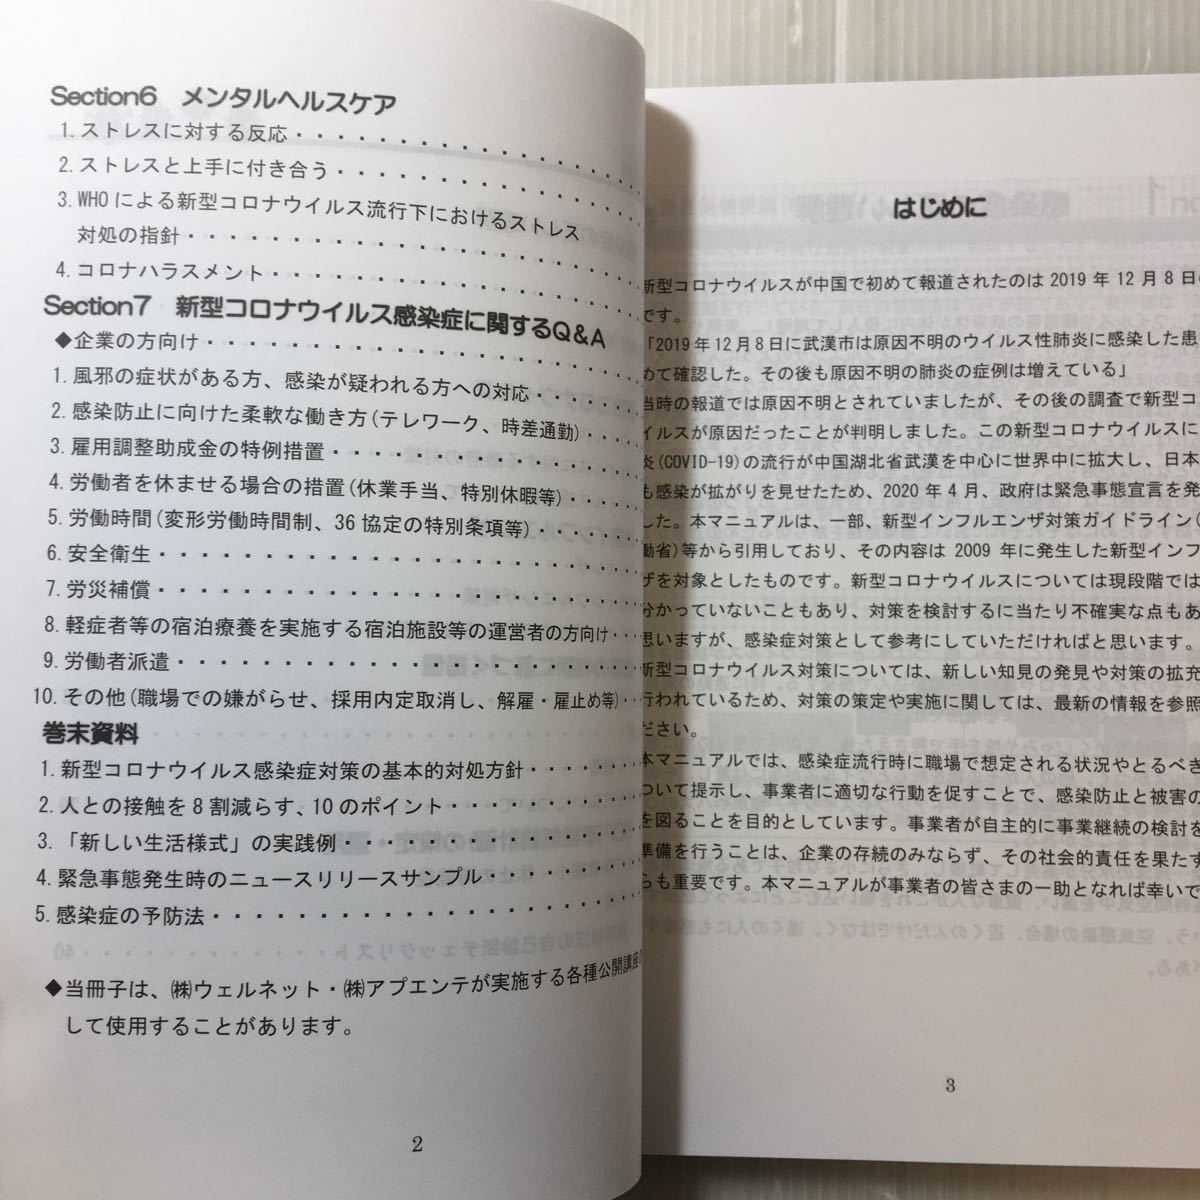 Section6 メンタルヘルスケア
1.ストレスに対する反応・・・・・・・・・・・・・・・
2.ストレスと上手に付き合う・・・・・・・・・・・・・
3.WHOによる新型コロナウイルス流行下におけるストレス
対処の指針・・・・・・・・・・・・・・・・・・・
4.コロナハラスメント・・・・・・・・・・・・・・・・
Section7 新型コロナウイルス感染症に関するQ&A
◆企業の方向け・・・・・・・・・・・・・・・・・・・・
1.風邪の症状がある方、感染が疑われる方への対応・・・・・
2.感染防止に向けた柔軟な働き方(テレワーク、時差通勤)・・・
3.雇用調整助成金の特例措置・・・・・・・・・・・・・・
4.労働者を休ませる場合の措置(休業手当、特別休暇等)・・・・
5.労働時間(変形労働時間制、36協定の特別条項等)・・・・・
6.安全衛生・・・・・・・・・・・・・・・・・・・・・
7.労災補償・・・・・・・・・・・・・・・・・・・・・
8.軽症者等の宿泊療養を実施する宿泊施設等の運営者の方向け・・
9.労働者派遣・・・・・・・・・・・・・・・・・・・・
10.その他(職場での嫌がらせ、採用内定取消し、解雇・雇止め等)・・
巻末資料
1.新型コロナウイルス感染症対策の基本的対処方針・・・・・・
2.人との接触を8割減らす、10のポイント・・・・・・・・・
3.「新しい生活様式」の実践例・・・・・・・・・・・・・
4.緊急事態発生時のニュースリリースサンプル・・・・・・・・
5.感染症の予防法・・・・・・・・・・・・・・・・・・・
◆当冊子は、㈱ウェルネット・㈱アプエンテが実施する各種公開講座
して使用することがあります。
2
はじめに
新型コロナウイルスが中国で初めて報道されたのは2019年12月8日
です。
「2019年12月8日に武漢市は原因不明のウイルス性肺炎に感染した患
めて確認した。その後も原因不明の肺炎の症例は増えている」
当時の報道では原因不明とされていましたが、その後の調査で新型コ
イルスが原因だったことが判明しました。この新型コロナウイルスに
炎(COVID-19)の流行が中国湖北省武漢を中心に世界中に拡大し、日本
も感染が拡がりを見せたため、2020年4月、政府は緊急事態宣言を発
した。本マニュアルは、一部、新型インフルエンザ対策ガイドライン(
働省)等から引用しており、その内容は2009年に発生した新型インフ
ザを対象としたものです。新型コロナウイルスについては現段階では
分かっていないこともあり、対策を検討するに当たり不確実な点もあ
思いますが、感染症対策として参考にしていただければと思います。
新型コロナウイルス対策については、新しい知見の発見や対策の拡充
行われているため、対策の策定や実施に関しては、最新の情報を参照
ださい。
本マニュアルでは、感染症流行時に職場で想定される状況やとるべき
ついて提示し、事業者に適切な行動を促すことで、感染防止と被害の
を図ることを目的としています。事業者が自主的に事業継続の検討を
準備を行うことは、企業の存続のみならず、その社会的責任を果たす
らも重要です。本マニュアルが事業者の皆さまの一助となれば幸いで
3